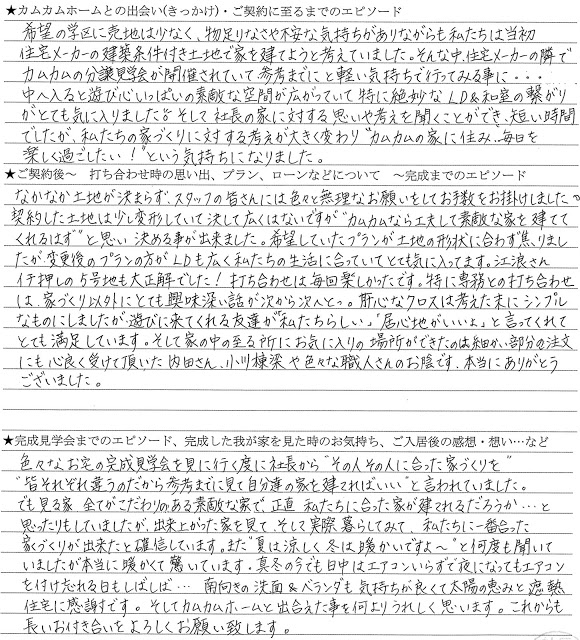 ★カムカムホームとの出会い(きっかけ)・ご契約に至るまでのエピソード
希望の学区に売地は少なく、物足りなさや不安な気持ちがありながらも私たちは当初
住宅メーカーの建築条件付き土地で家を建てようと考えていました。そんな中、住宅メーカーの隣で
カムカムの分譲見学会が開催されていて参考までにと軽い気持ちで行ってみる事に・・・
中へ入ると遊び心いっぱいの素敵な空間が広がっていて特に絶妙なLD&和室の繋がり
がとても気に入りました!!そして社長の家に対する思いや考えを聞くことができ、短い時間
でしたが、私たちの家づくりに対する考えが大きく変わり“カムカムの家に住み、毎日を
楽しく過ごしたい!”という気持ちになりました。
★ご契約後～　打ち合わせ時の思い出、プラン、ローンなどについて　～完成までのエピソード
なかなか土地が決まらず、スタッフの皆さんには色々と無理なお願いをしてお手数をお掛けしました。
契約した土地は少し変形していて決して広くはないですが“カムカムなら工夫して素敵な家を建てて
くれるはず”と思い決める事が出来ました。希望していたプランが土地の形状に合わず焦りまし
たが、変更後のプランの方がLDも広く私たちの生活に合っていてとても気に入ってます。江浪さん
イチ押しの5号地も大正解でした!打ち合わせは毎回楽しかったです。特に専務との打ち合わせ
は、家づくり以外にとても興味深い話が次から次へと。肝心なクロスは考えた末にシンプル
なものにしましたが遊びに来てくれる友達が「私たちらしい」「居心地がいいよ」と言ってくれて
とても満足しています。そして家の中の至る所にお気に入りの場所ができたのは細かい部分の注文
にも心良く受けて頂いた内田さん、小川棟梁や色々な職人さんのお陰です、本当にありがとう
ございました。
★完成見学会までのエピソード、完成した我が家を見た時のお気持ち、ご入居後の感想・想い…など
色々なお宅の完成見学会を見に行く度に社長から“その人その人に合った家づくりを”
“皆それぞれ違うのだから参考までに見て自分達の家を建てればいい”と言われていました。
でも見る家全てがこだわりのある素敵な家で、正直私たちに合った家が建てれるだろうか…と
思ったりもしていましたが、出来上がった家を見て、そして実際暮らしてみて、私たちに一番合った
家づくりが出来たと確信しています。また“夏は涼しく冬は暖かいですよ～”と何度も聞いて
いましたが本当に暖かくて驚いています。真冬の今でも日中はエアコンいらずで夜になってもエアコン
を付け忘れる日もしばしば… 南向きの洗面&ベランダも気持ちが良くて太陽の恵みと遮熱
住宅に感謝です。そしてカムカムホームと出会えた事を何よりうれしく思います。これからも
長いお付き合いをよろしくお願い致します。